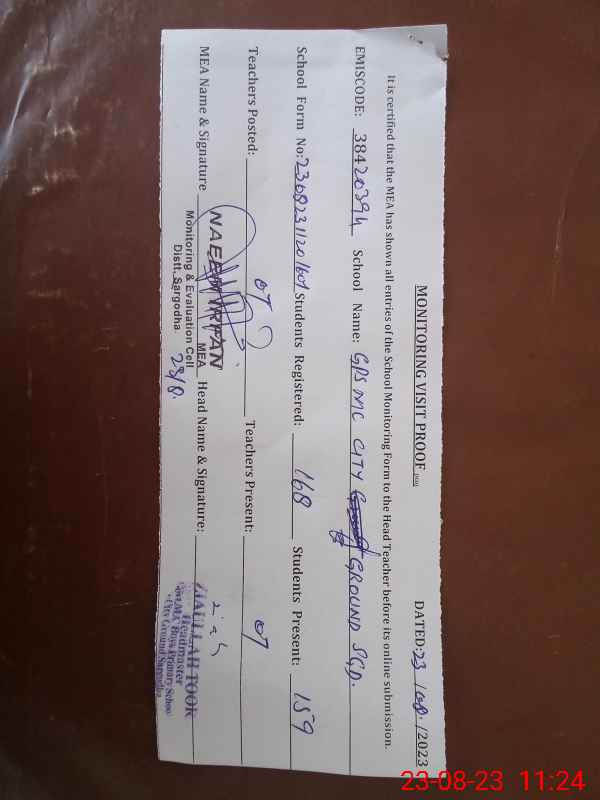 MONITORING VISIT PROOF
DATED: 23 /08/2023
It is certified that the MEA has shown all entries of the School Monitoring Form to the Head Teacher before its online submission.
EMISCODE: 38420394 School Name: GPS MC CITY GROUND SGD.
School Form No: Students Registered: 168 Students Present: 159
Teachers Posted: 07 Teachers Present: 07
MEA Name & Signature Head Name & Signature:
NAEEM IRFAN
MEA
Monitoring & Evaluation Cell
Distt. Sargodha
23/8
Headmaster
City Ground Sargodha
23-08-23 11:24